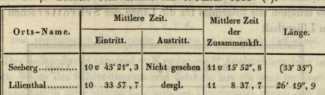 Orts-Name. Mittlere Zeit. Mittlere Zeit der Zusammenkft. Länge.
Eintritt. Austritt.
Seeberg............ 10 u 43' 21", 3 Nicht gesehen 11 u 15' 52", 8 (33' 35")
Lilienthal.......... 10 33 57, 7 desgl. 11 8 37, 7 26' 19", 9